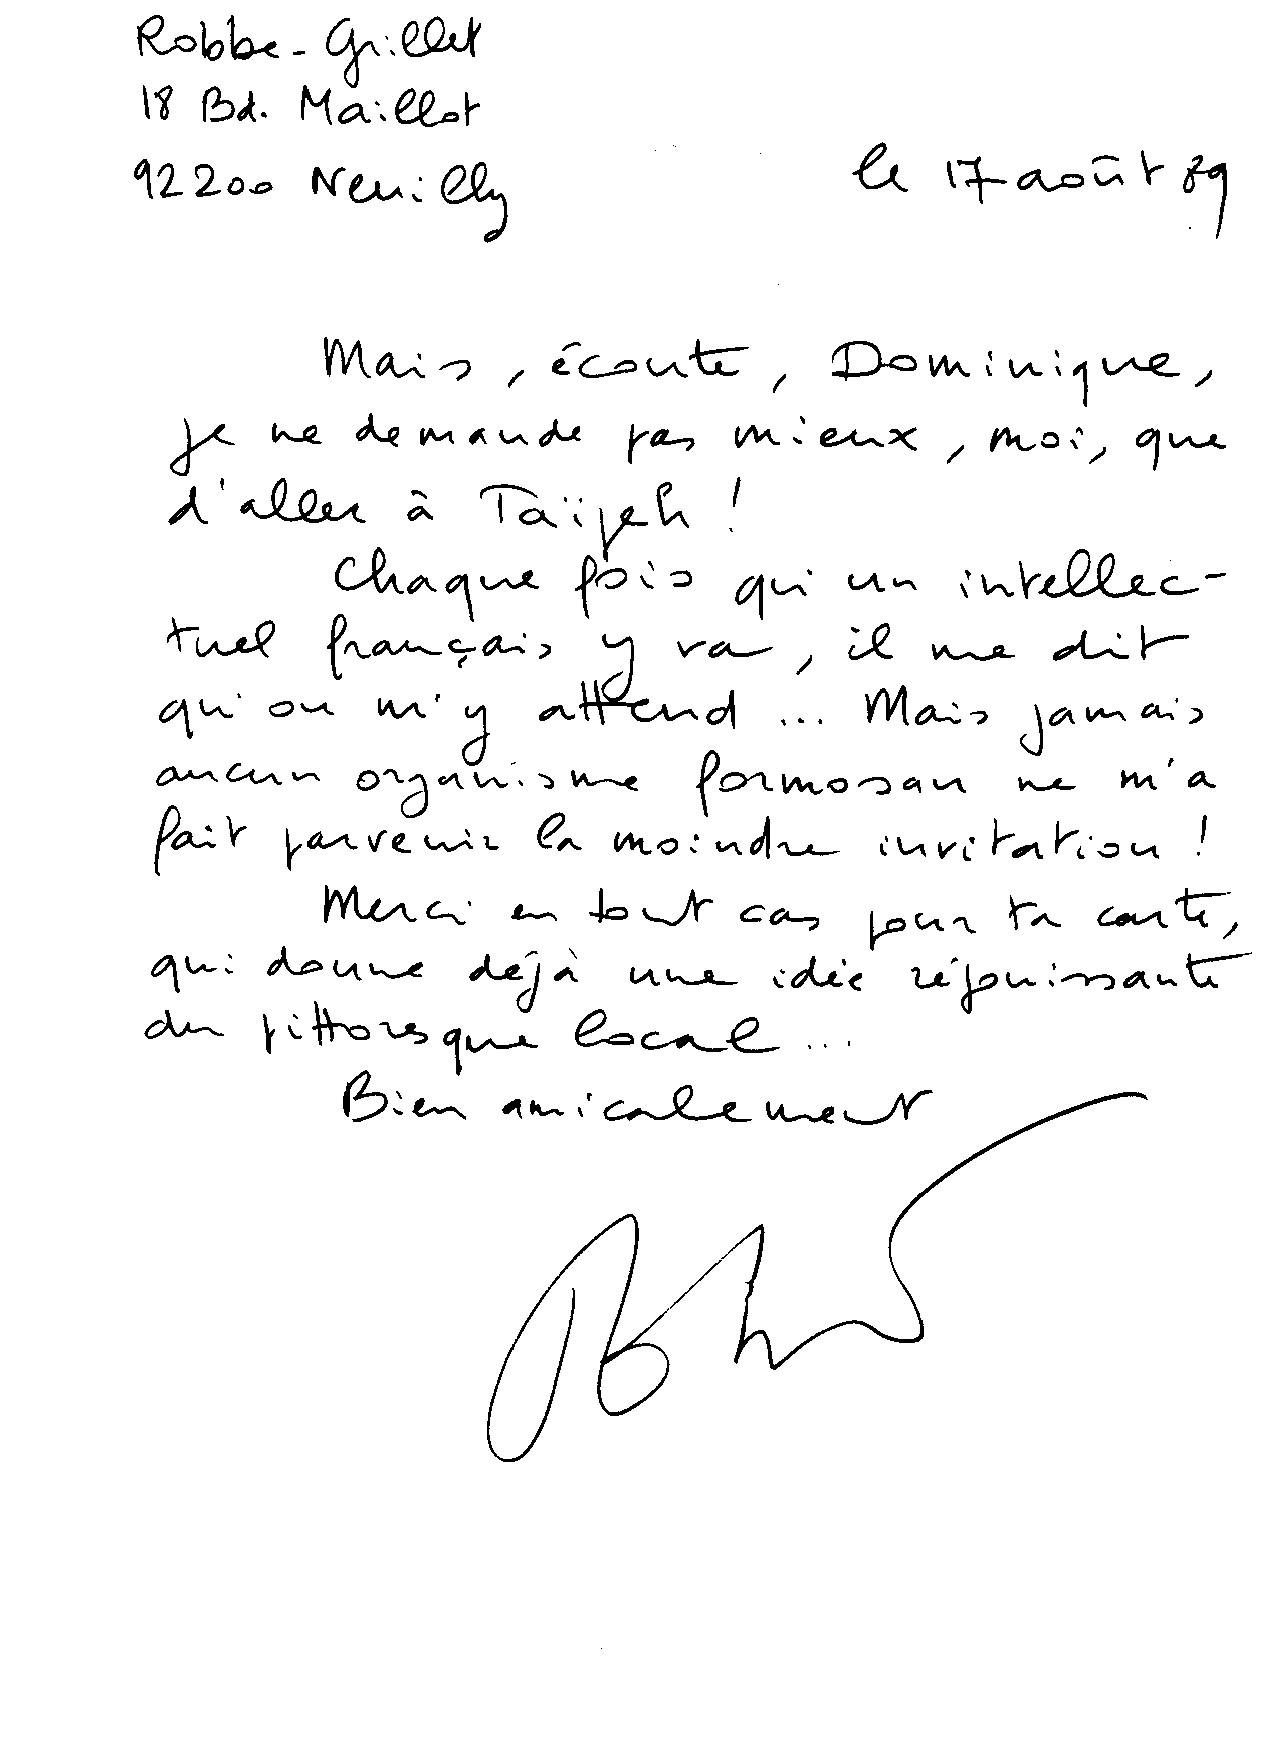 Robbe-Grillet
18 Bd. Maillot
92200 Neuilly
le 17 août 89
Mais, écoute, Dominique,
je ne demande pas mieux, moi, que
d'aller à Taïpeh !
Chaque fois qu'un intellec-
tuel français y va, il me dit
qu'on m'y attend ... Mais jamais
aucun organisme formosan ne m'a
fait parvenir la moindre invitation !
Merci en tout cas pour ta carte,
qui donne déjà une idée réjouissante
du pittoresque local ...
Bien amicalement